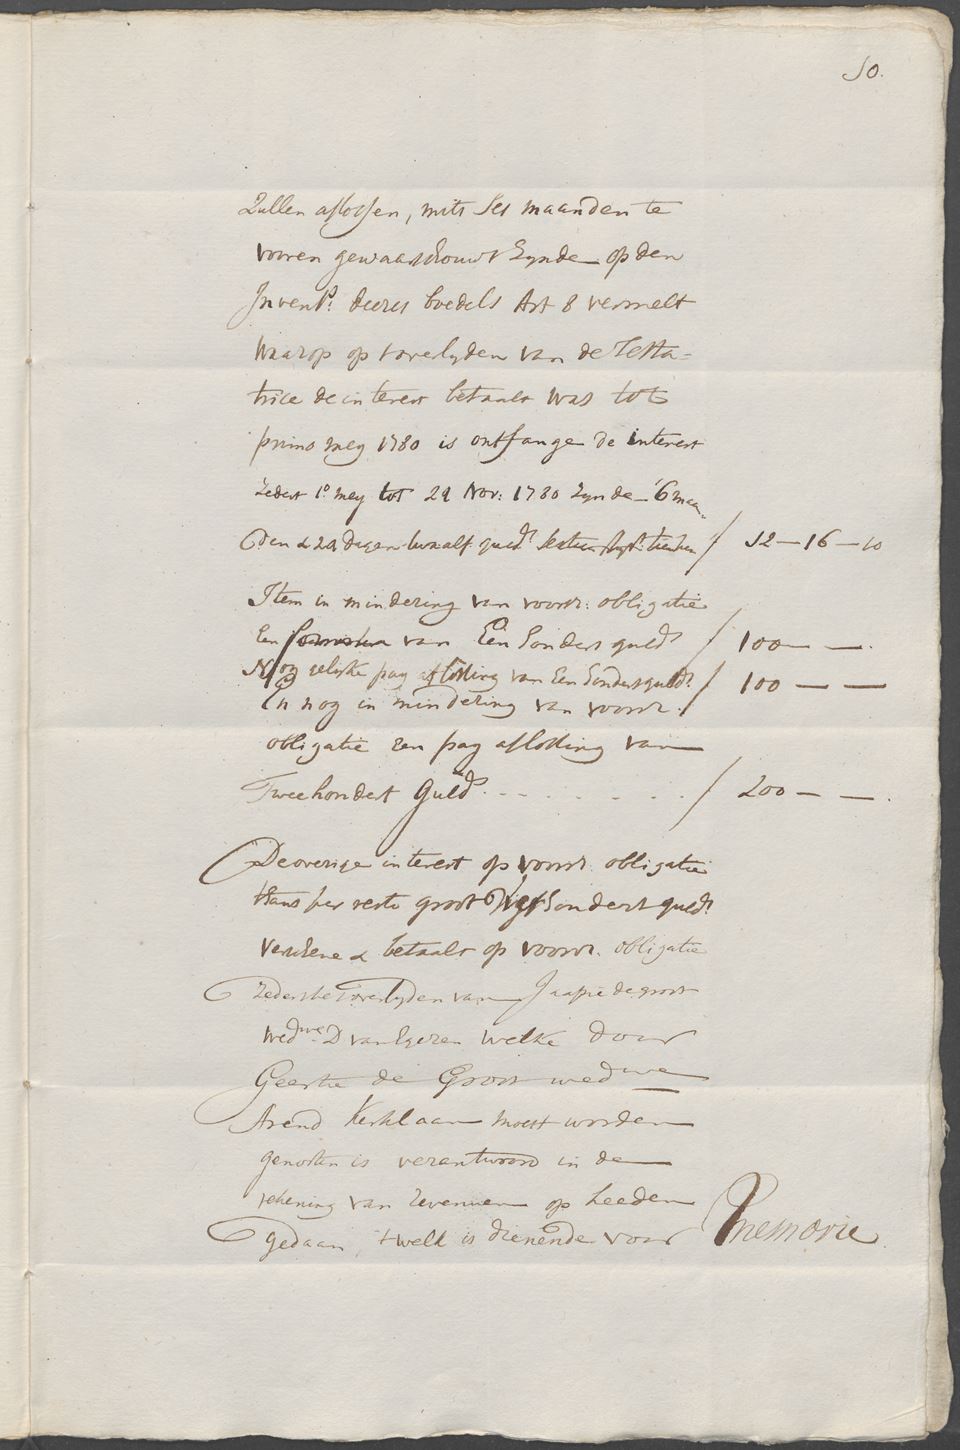 10.
Zullen aflossen, mits Ses maanden te
voren gewaarschouwt Zynde op den
Invents. deeses boedels Art 8 vermelt
Waarop op t overlyden van de Testa=
trice de interest betaalt was tot
primo mey 1780 is ontfangen de interest
zedert 1o. mey tot 29 Nov: 1780 Zynde 6 maan
den & 29 dagen twaalf guld. / 12 - 16 - 10
Item in mindering van voorsz: obligatie
Een van Een Hondert guld / 100 - -.
Nog gelijke pay aflossing van Een Hondert guld. / 100 - -
En nog in mindering van voorsz.
obligatie een pay aflossing van
Twee hondert Guld . - - - - - . / 200 - -.
De overige interest op voorsz. obligatie
thans per resto groot Hondert guld.
verschene & betaalt op voorsz. obligatie
Zedert het overlyden van Jaapie de groot
wedwe. D van Egeren welke door
Geertie de Groot wedwe
Arend Kerklaan moest worden
genoten is verantwoord in de
rekening van revenuen op heeden
gedaan, 't welk is dienende voor Memorie